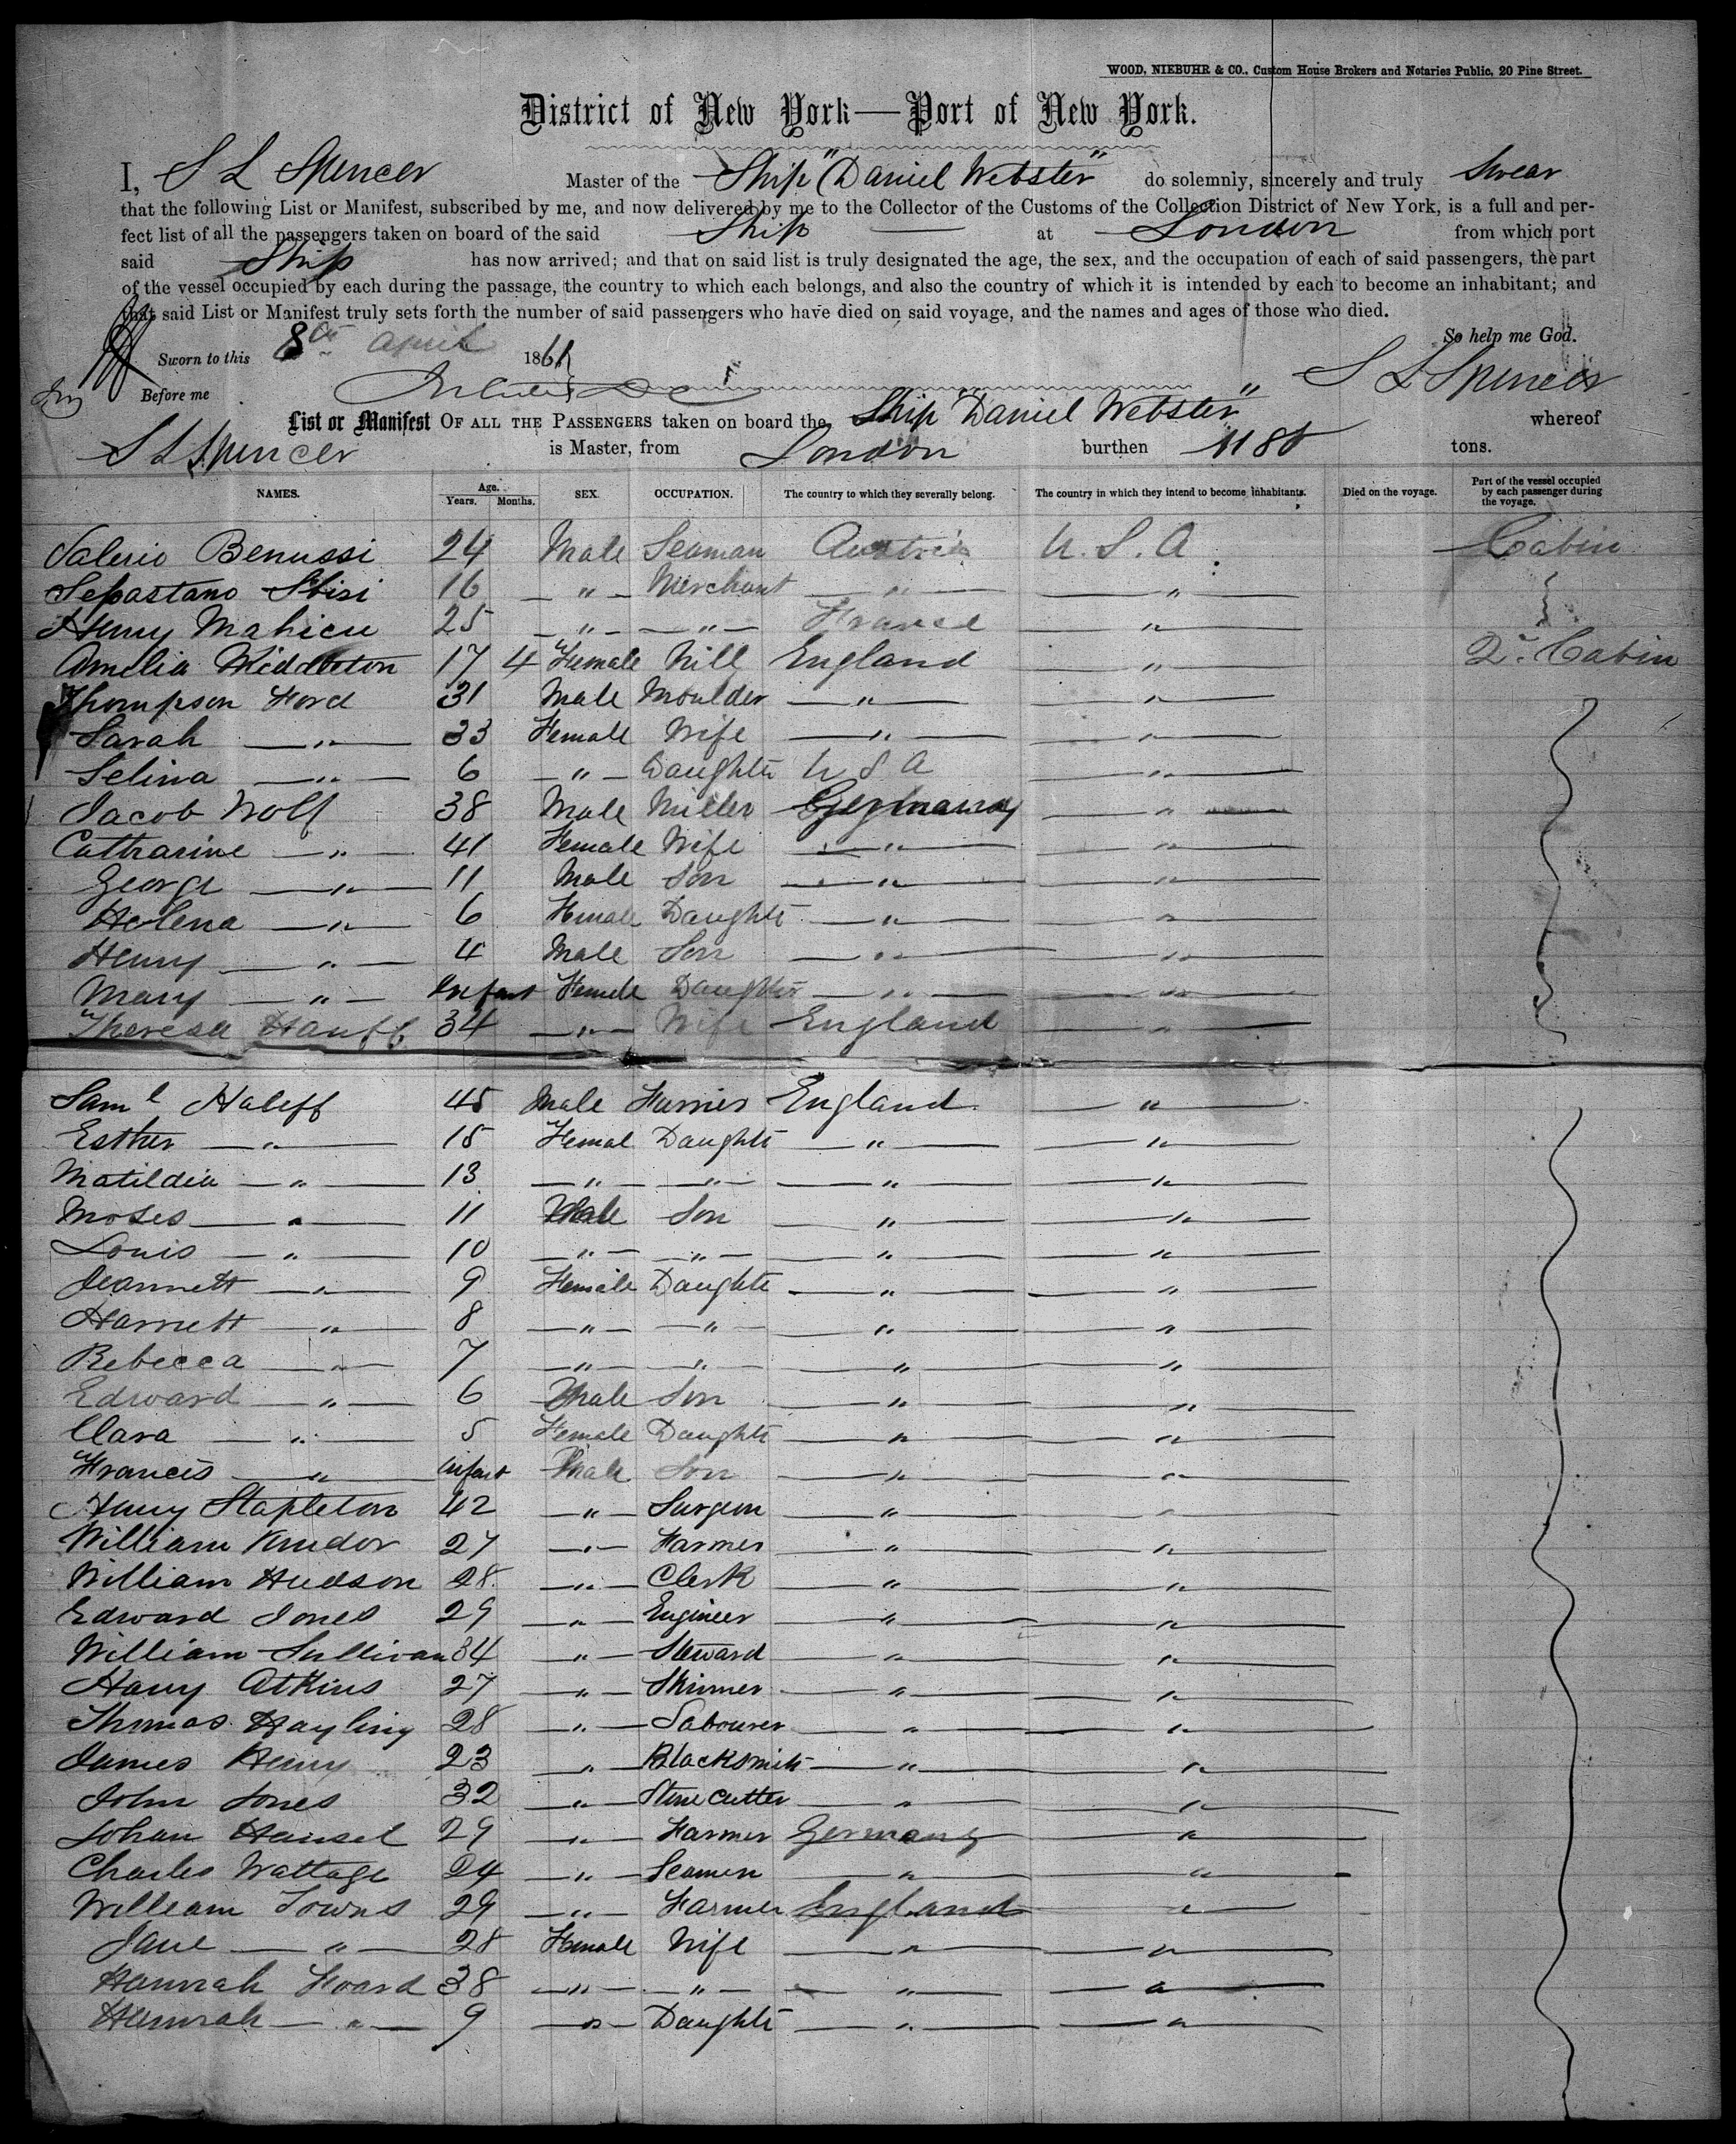 WOOD, NIEBUHR & CO., Custom House Brokers and Notaries Public, 20 Pine Street.
District of New York—Port of New York.
I, S L Spencer Master of the Ship "Daniel Webster" do solemnly, sincerely and truly Swear
that the following List or Manifest, subscribed by me, and now delivered by me to the Collector of the Customs of the Collection District of New York, is a full and per-
fect list of all the passengers taken on board of the said Ship — at London from which port
said Ship has now arrived; and that on said list is truly designated the age, the sex, and the occupation of each of said passengers, the part
of the vessel occupied by each during the passage, the country to which each belongs, and also the country of which it is intended by each to become an inhabitant; and
that said List or Manifest truly sets forth the number of said passengers who have died on said voyage, and the names and ages of those who died.
So help me God.
Sworn to this 8th April 1861
S L Spencer
Before me
List or Manifest OF ALL THE PASSENGERS taken on board the Ship "Daniel Webster" whereof
S L Spencer is Master, from London burthen 1180 tons.
NAMES. Age. Years. Months. SEX. OCCUPATION. The country to which they severally belong. The country in which they intend to become inhabitants. Died on the voyage. Part of the vessel occupied by each passenger during the voyage.
Valerio Benussi 24 Male Seaman Austria U. S. A Cabin
Sepastano Sbisi 16 " Merchant " "
Henry Mahieu 25 " " France "
Amelia Middleton 17 4 Female Nill England " 2d. Cabin
Thompson Ford 31 Male Moulder " "
Sarah " 33 Female Wife " "
Selina " 6 " Daughtr U S A "
Jacob Wolf 38 Male Miller Germany "
Catharine " 41 Female Wife " "
George " 11 Male Son " "
Helena " 6 Female Daughtr " "
Henry " 4 Male Son " "
Mary " Infant Female Daughter " "
Theresa Hauff 34 " Wife England "
Saml Haleff 45 Male Furrier England "
Esther " 15 Femal Daughtr " "
Matildia " 13 " " " "
Moses " 11 Male Son " "
Louis " 10 " " " "
Jeannett " 9 Female Daughtr " "
Harriett " 8 " " " "
Rebecca " 7 " " " "
Edward " 6 Male Son " "
Clara " 5 Female Daughtr " "
Francis " Infant Male Son " "
Henry Stapleton 42 " Surgeon " "
William 27 " Farmer " "
William Hudson 28 " Clerk " "
Edward Jones 29 " Engineer " "
William Sullivan 34 " Steward " "
Harry Atkins 27 " Skinner " "
Thomas Hayling 28 " Labourer " "
James Henry 23 " Blacksmith " "
John Jones 32 " Stone Cutter " "
Johan Hansel 29 " Farmer Germany "
Charles Wattage 24 " Seamen " "
William Towns 29 " Farmer England "
Jane " 28 Female Wife " "
Hannah Hoard 38 " " " "
Hannah " 9 " Daughtr " "